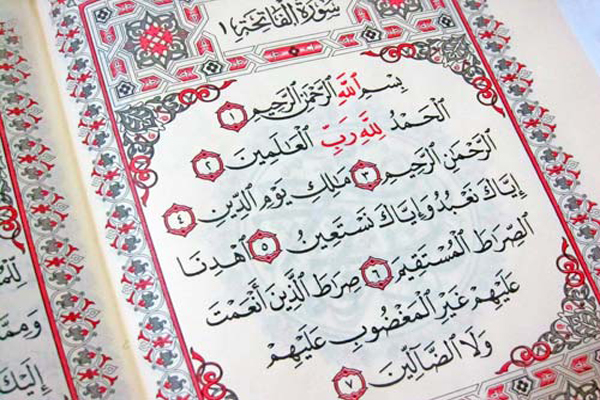 سُورَةُ الفَاتِحَةِ ١
بِسْمِ ٱللَّهِ ٱلرَّحْمَٰنِ ٱلرَّحِيمِ ١
ٱلْحَمْدُ لِلَّهِ رَبِّ ٱلْعَٰلَمِينَ ٢
ٱلرَّحْمَٰنِ ٱلرَّحِيمِ ٣ مَٰلِكِ يَوْمِ ٱلدِّينِ ٤
إِيَّاكَ نَعْبُدُ وَإِيَّاكَ نَسْتَعِينُ ٥ ٱهْدِنَا
ٱلصِّرَٰطَ ٱلْمُسْتَقِيمَ ٦ صِرَٰطَ ٱلَّذِينَ أَنْعَمْتَ
عَلَيْهِمْ غَيْرِ ٱلْمَغْضُوبِ عَلَيْهِمْ
وَلَا ٱلضَّآلِّينَ ٧
إِلَيْكَ